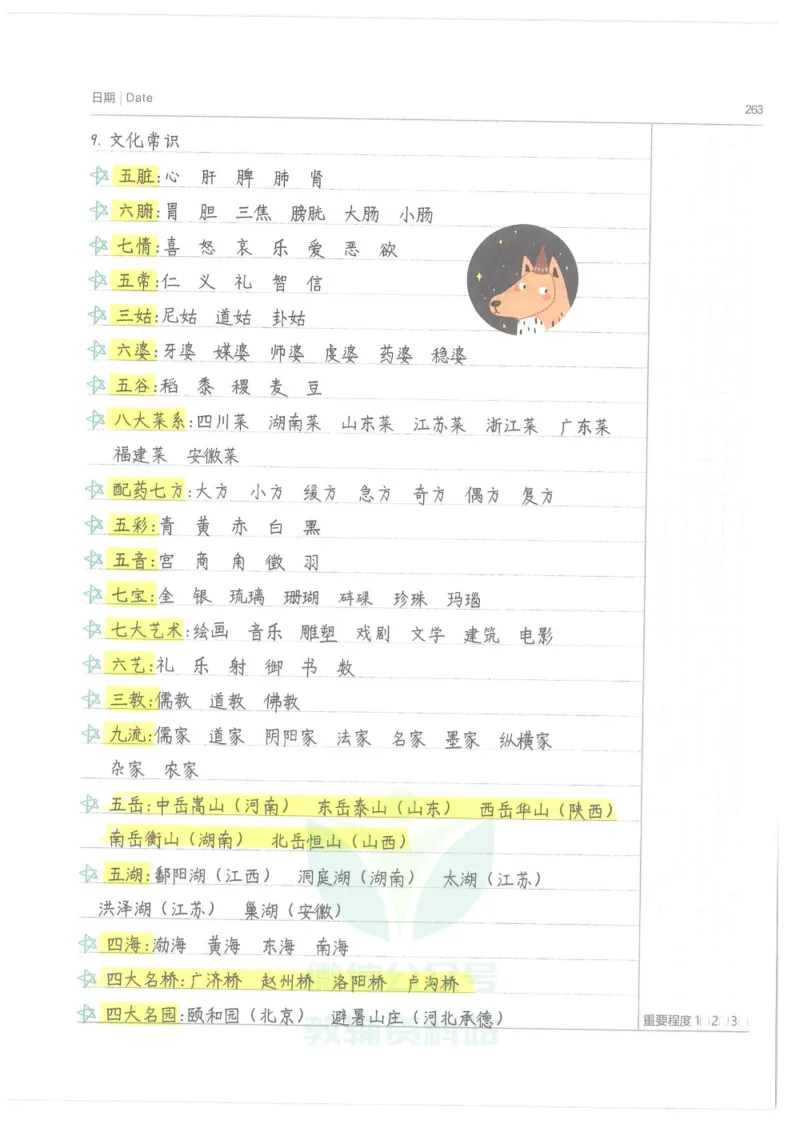 日期 | Date
263
9. 文化常识
五脏:心 肝 脾 肺 肾
六腑:胃 胆 三焦 膀胱 大肠 小肠
七情:喜 怒 哀 乐 爱 恶 欲
五常:仁 义 礼 智 信
三姑:尼姑 道姑 卦姑
六婆:牙婆 媒婆 师婆 虔婆 药婆 稳婆
五谷:稻 黍 稷 麦 豆
八大菜系:四川菜 湖南菜 山东菜 江苏菜 浙江菜 广东菜
福建菜 安徽菜
配药七方:大方 小方 缓方 急方 奇方 偶方 复方
五彩:青 黄 赤 白 黑
五音:宫 商 角 徵 羽
七宝:金 银 琉璃 珊瑚 砗磲 珍珠 玛瑙
七大艺术:绘画 音乐 雕塑 戏剧 文学 建筑 电影
六艺:礼 乐 射 御 书 数
三教:儒教 道教 佛教
九流:儒家 道家 阴阳家 法家 名家 墨家 纵横家
杂家 农家
五岳:中岳嵩山（河南） 东岳泰山（山东） 西岳华山（陕西）
南岳衡山（湖南） 北岳恒山（山西）
五湖:鄱阳湖（江西） 洞庭湖（湖南） 太湖（江苏）
洪泽湖（江苏） 巢湖（安徽）
四海:渤海 黄海 东海 南海
四大名桥:广济桥 赵州桥 洛阳桥 卢沟桥
微信公众号
四大名园:颐和园（北京） 避暑山庄（河北承德）
教辅资料站
重要程度 1 2 3